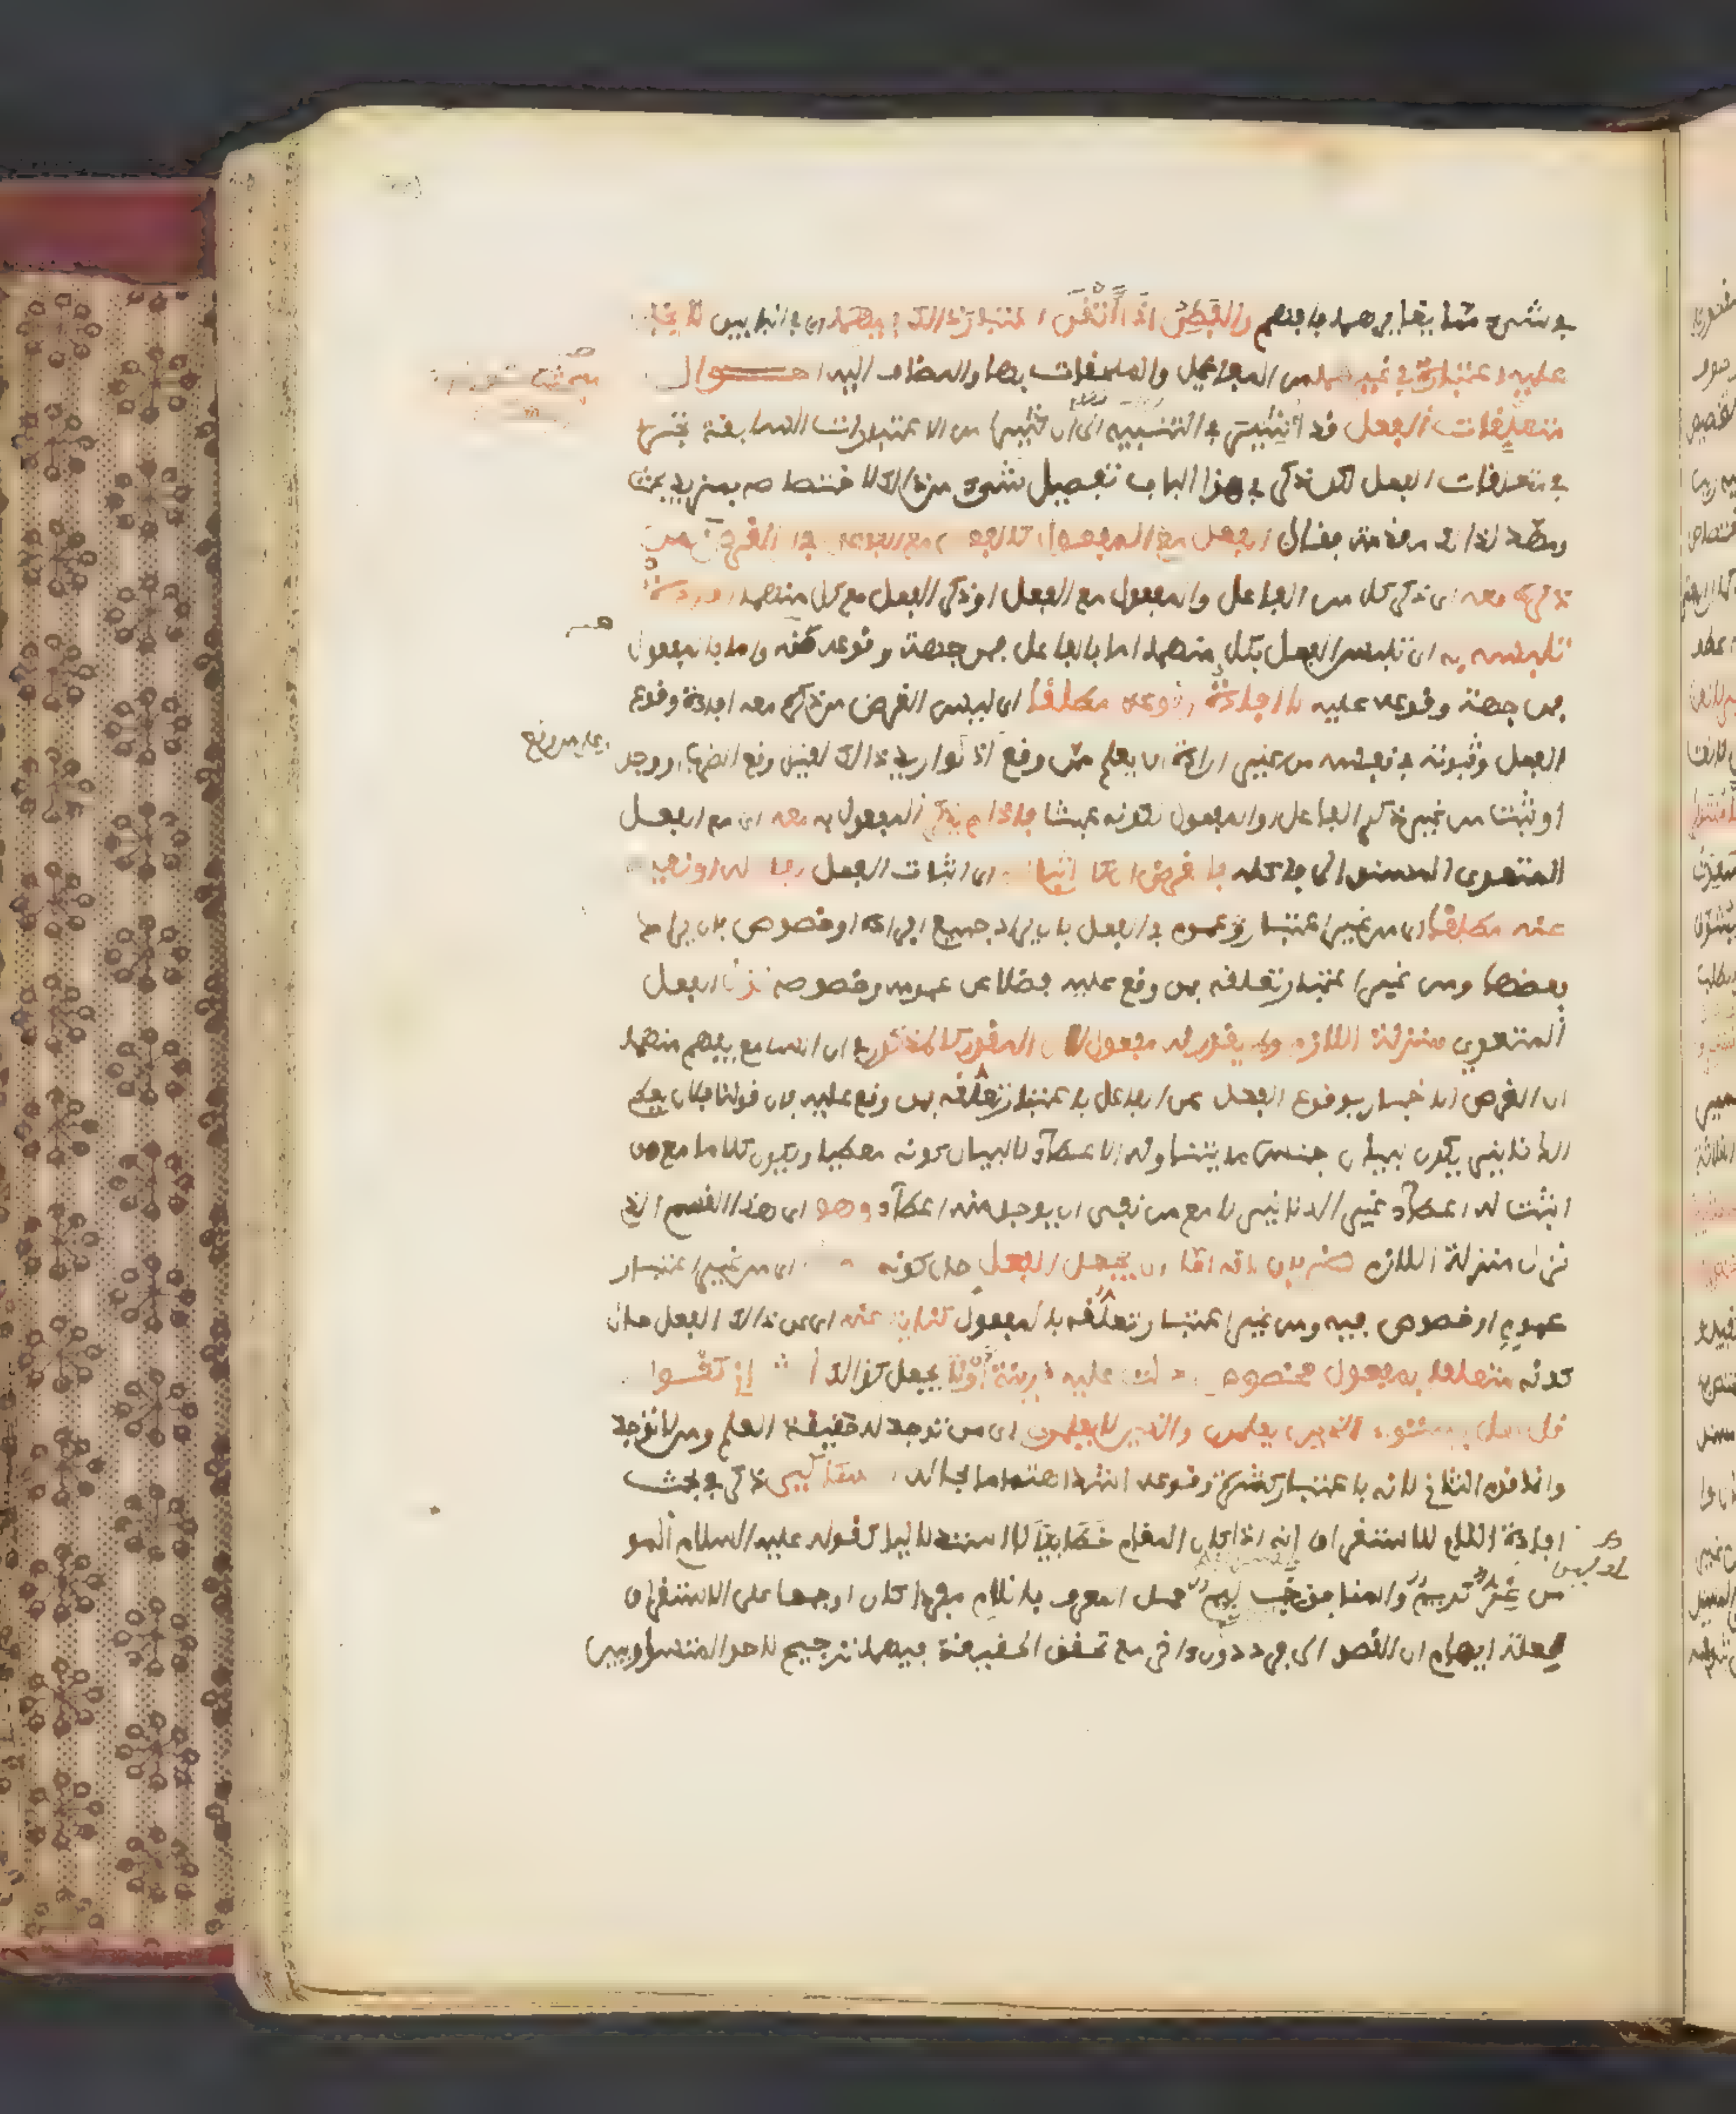 في شيء مما يغايرهما فافهم والفطن اذا اتقن اعتبار ذالك فيهما اى في البابين لا يخفى
عليه اعتباره في غيرهما من المفاعيل والملحقات بها والمضاف اليه احوال
متعلقات الفعل قد اشير في التنبيه الى ان كثيرا من الاعتبارات السابقة تجرى
في متعلقات الفعل لكن ذكر في هذا الباب تفصيل شيء من ذالك لاختصاصه بمزيد بحث
ومهد لذالك مقدمة فقال الفعل مع المفعول كالفعل مع الفاعل في ان الغرض من
ذكره معه اى ذكر كل من الفاعل والمفعول مع الفعل او ذكر الفعل مع كل منهما افادة
تلبسه به اى تلبس الفعل بكل منهما اما بالفاعل فمن جهة وقوعه منه واما بالمفعول
فمن جهة وقوعه عليه لا افادة وقوعه مطلقا اى ليس الغرض من ذكره معه افادة وقوع
الفعل وثبوته في نفسه من غير ارادة ان يعلم ممن وقع اذ لو اريد ذالك لقيل وقع الضرب او وجد
او ثبت من غير ذكر الفاعل او المفعول لكونه عبثا فاذا لم يذكر المفعول به معه اى مع الفعل
المتعدى المسند الى فاعله فالغرض ان كان اثباته اى اثبات الفعل لفاعله او نفيه
عنه مطلقا اى من غير اعتبار عموم في الفعل بان يراد جميع افراده او خصوص بان يراد
بعضها ومن غير اعتبار تعلقه بمن وقع عليه فضلا عن عمومه وخصوصه نزل الفعل
المتعدي منزلة اللازم ولم يقدر له مفعول لان المقدر كالمذكور في ان السامع يفهم منهما
ان الغرض الاخبار بوقوع الفعل عن الفاعل باعتبار تعلقه بمن وقع عليه فان قولنا فلان يعطى
الدنانير يكون لبيان جنس ما يتناوله الاعطاء لا لبيان كونه معطيا ويكون كلاما مع من
اثبت له اعطاء غير الدنانير لا مع من نفى ان يوجد منه اعطاء وهو اى هذا القسم الذي
نزل منزلة اللازم ضربان لانه اما ان يجعل الفعل حال كونه اى من غير اعتبار
عموم او خصوص فيه ومن غير اعتبار تعلقه بالمفعول كناية عنه اى عن ذالك الفعل حال
كونه متعلقا بمفعول مخصوص دلت عليه قرينة اولا يجعل كذالك
قل هل يستوى الذين يعلمون والذين لا يعلمون اى من توجد له حقيقة العلم ومن لا توجد
وانما قدم الثاني لانه باعتبار كثرة وقوعه اشد اهتماما بحاله السكاكى ذكر في بحث
افادة اللام للاستغراق انه اذا كان المقام خطابيا لا استدلاليا كقوله عليه السلام المو
من غر كريم والمنافق خب لئيم حمل المعرف باللام مفردا كان او جمعا على الاستغراق
بعلة ايهام ان القصد الى فرد دون اخر مع تحقق الحقيقة فيهما ترجيح لاحد المتساويين